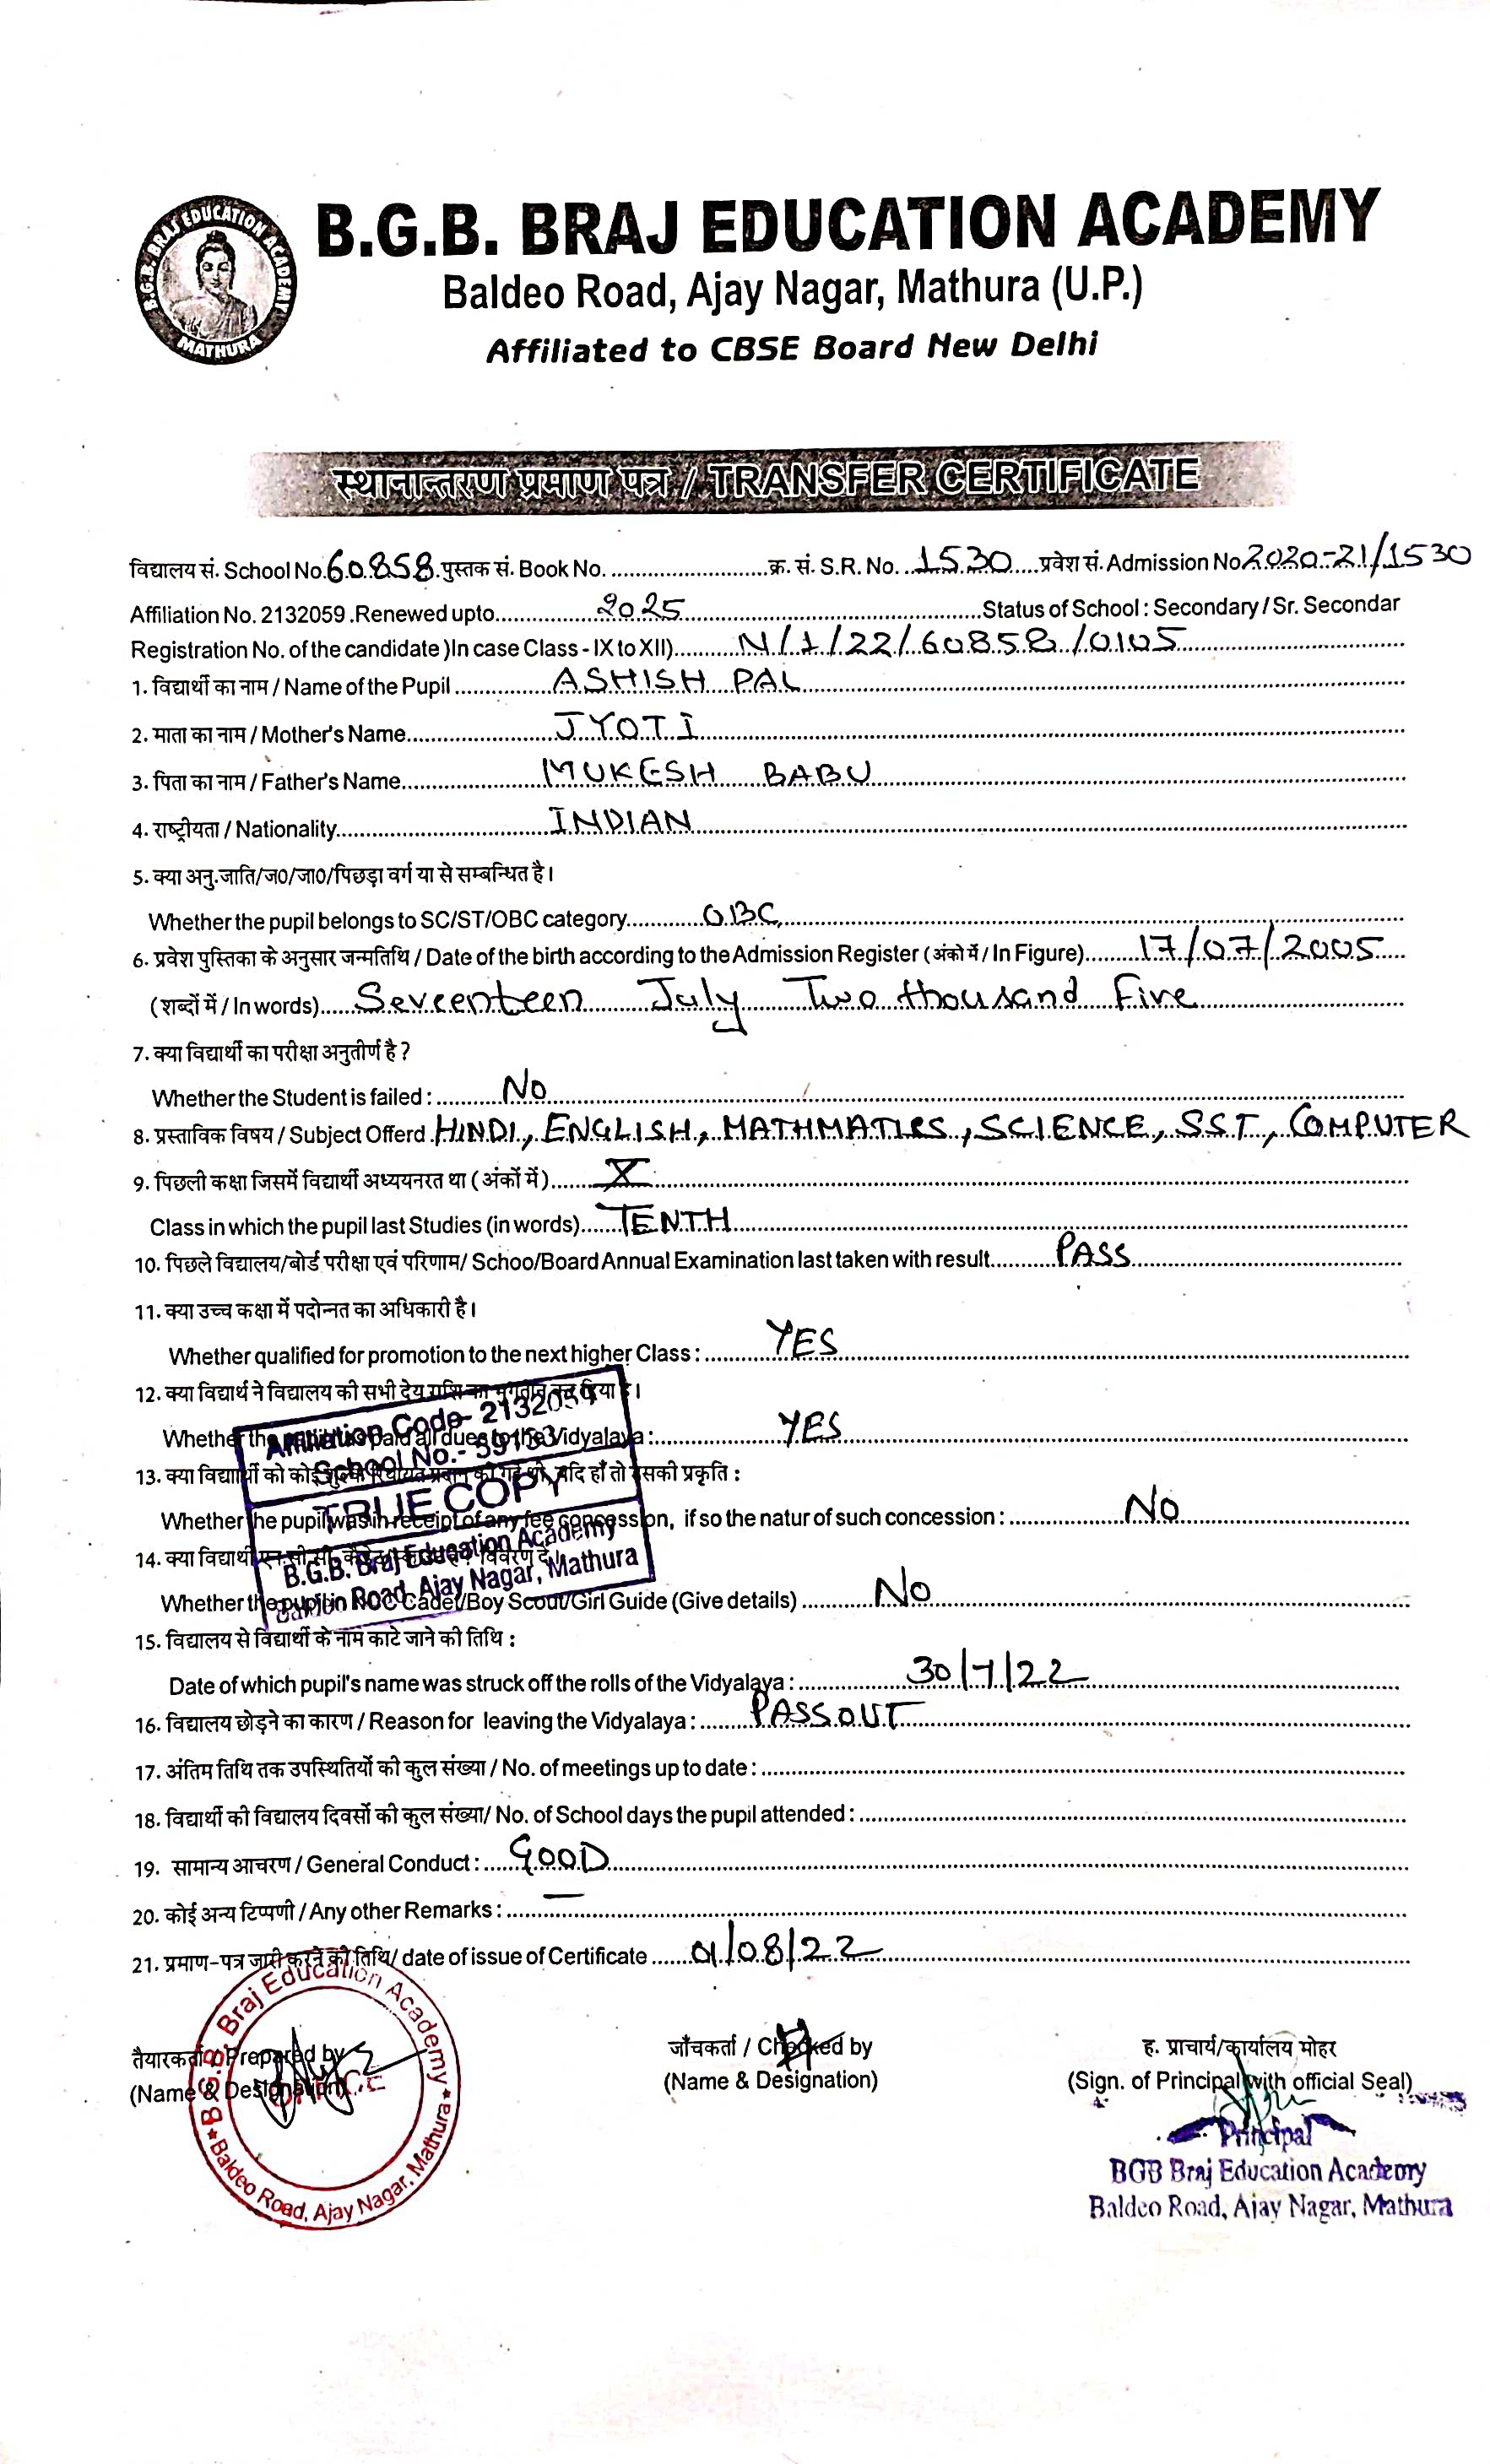 B.G.B. BRAJ EDUCATION ACADEMY
MATHURA
B.G.B. BRAJ EDUCATION ACADEMY
Baldeo Road, Ajay Nagar, Mathura (U.P.)
Affiliated to CBSE Board New Delhi
स्थानान्तरण प्रमाण पत्र / TRANSFER CERTIFICATE
विद्यालय सं. School No. 60858 पुस्तक सं. Book No. ........ क्र. सं. S.R. No. 1530 प्रवेश सं. Admission No 2020-21/1530
Affiliation No. 2132059 .Renewed upto 2025 Status of School : Secondary / Sr. Secondar
Registration No. of the candidate )In case Class - IX to XII) N/1/22/60858/0105
1. विद्यार्थी का नाम / Name of the Pupil ASHISH PAL
2. माता का नाम / Mother's Name JYOTI
3. पिता का नाम / Father's Name MUKESH BABU
4. राष्ट्रीयता / Nationality INDIAN
5. क्या अनु.जाति/ज0/जा0/पिछड़ा वर्ग या से सम्बन्धित है।
Whether the pupil belongs to SC/ST/OBC category OBC
6. प्रवेश पुस्तिका के अनुसार जन्मतिथि / Date of the birth according to the Admission Register (अंको में / In Figure) 17/07/2005
(शब्दों में / In words) Seveenteen July Two thousand Five
7. क्या विद्यार्थी का परीक्षा अनुतीर्ण है ?
Whether the Student is failed : No
8. प्रस्ताविक विषय / Subject Offerd HINDI, ENGLISH, MATHMATICS, SCIENCE, SST, COMPUTER
9. पिछली कक्षा जिसमें विद्यार्थी अध्ययनरत था ( अंकों में ) X
Class in which the pupil last Studies (in words) TENTH
10. पिछले विद्यालय/बोर्ड परीक्षा एवं परिणाम/ Schoo/Board Annual Examination last taken with result PASS
11. क्या उच्च कक्षा में पदोन्नत का अधिकारी है।
Whether qualified for promotion to the next higher Class : YES
12. क्या विद्यार्थ ने विद्यालय की सभी देय राशि का भुगतान कर दिया है।
Whether the pupil has paid all dues to the Vidyalaya : YES
13. क्या विद्यार्थी को कोई शुल्क रियायत प्रदान की गई थी, यदि हाँ तो उसकी प्रकृति :
Whether the pupil was in receipt of any fee concession, if so the natur of such concession : No
14. क्या विद्यार्थी एन.सी.सी. विवरण दें।
Whether the pupil in NCC Cadet/Boy Scout/Girl Guide (Give details) No
Affiliation Code- 2132059
School No.- 59153
TRUE COPY
B.G.B. Braj Education Academy
Baldeo Road, Ajay Nagar, Mathura
15. विद्यालय से विद्यार्थी के नाम काटे जाने की तिथि :
Date of which pupil's name was struck off the rolls of the Vidyalaya : 30/7/22
16. विद्यालय छोड़ने का कारण / Reason for leaving the Vidyalaya : PASSOUT
17. अंतिम तिथि तक उपस्थितियों की कुल संख्या / No. of meetings up to date :
18. विद्यार्थी की विद्यालय दिवसों की कुल संख्या/ No. of School days the pupil attended :
19. सामान्य आचरण / General Conduct : GOOD
20. कोई अन्य टिप्पणी / Any other Remarks : —
21. प्रमाण-पत्र जारी करने की तिथि/ date of issue of Certificate 01/08/22
तैयारकर्ता / Prepared by
(Name & Designation)
B.G.B. Braj Education Academy
OFFICE
Baldeo Road, Ajay Nagar, Mathura
जाँचकर्ता / Checked by
(Name & Designation)
ह. प्राचार्य/कार्यालय मोहर
(Sign. of Principal with official Seal)
Principal
BGB Braj Education Academy
Baldeo Road, Ajay Nagar, Mathura